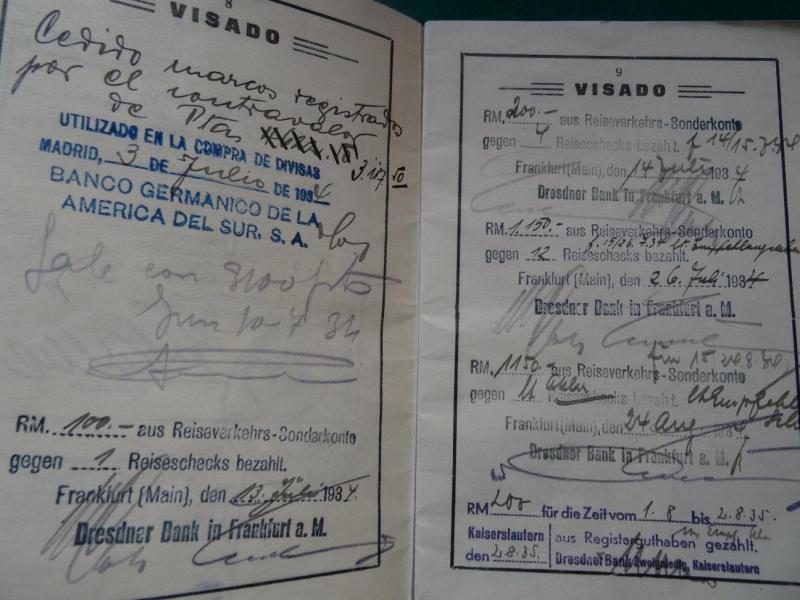 8
VISADO
Cedido marcos registrados
por el contravalor
de Ptas
UTILIZADO EN LA COMPRA DE DIVISAS
MADRID, 3 DE Julio DE 1934
BANCO GERMANICO DE LA
AMERICA DEL SUR, S. A.
Sale con 3100 pts
Irun 10-7-34
RM. 100.- aus Reiseverkehrs-Sonderkonto
gegen 1 Reiseschecks bezahlt.
Frankfurt (Main), den 13. Juli 1934.
Dresdner Bank in Frankfurt a. M.
9
VISADO
RM. 200.- aus Reiseverkehrs-Sonderkonto
gegen 4 Reiseschecks bezahlt. f 14/15.7.34
Frankfurt (Main), den 14 Juli 1934
Dresdner Bank in Frankfurt a. M.
RM. 1.150.- aus Reiseverkehrs-Sonderkonto
f. 15/26.7.34
gegen 12 Reiseschecks bezahlt.
Frankfurt (Main), den 26. Juli 1934
Dresdner Bank in Frankfurt a. M.
RM. 1150.- aus Reiseverkehrs-Sonderkonto
gegen Reiseschecks bezahlt.
Frankfurt (Main), den 24 Aug
Dresdner Bank in Frankfurt a. M.
RM 200 für die Zeit vom 1.8 bis 2.8.35.
Kaiserslautern aus Registerguthaben gezahlt.
den 2.8.35. Dresdner Bank Zweigniedlg. Kaiserslautern